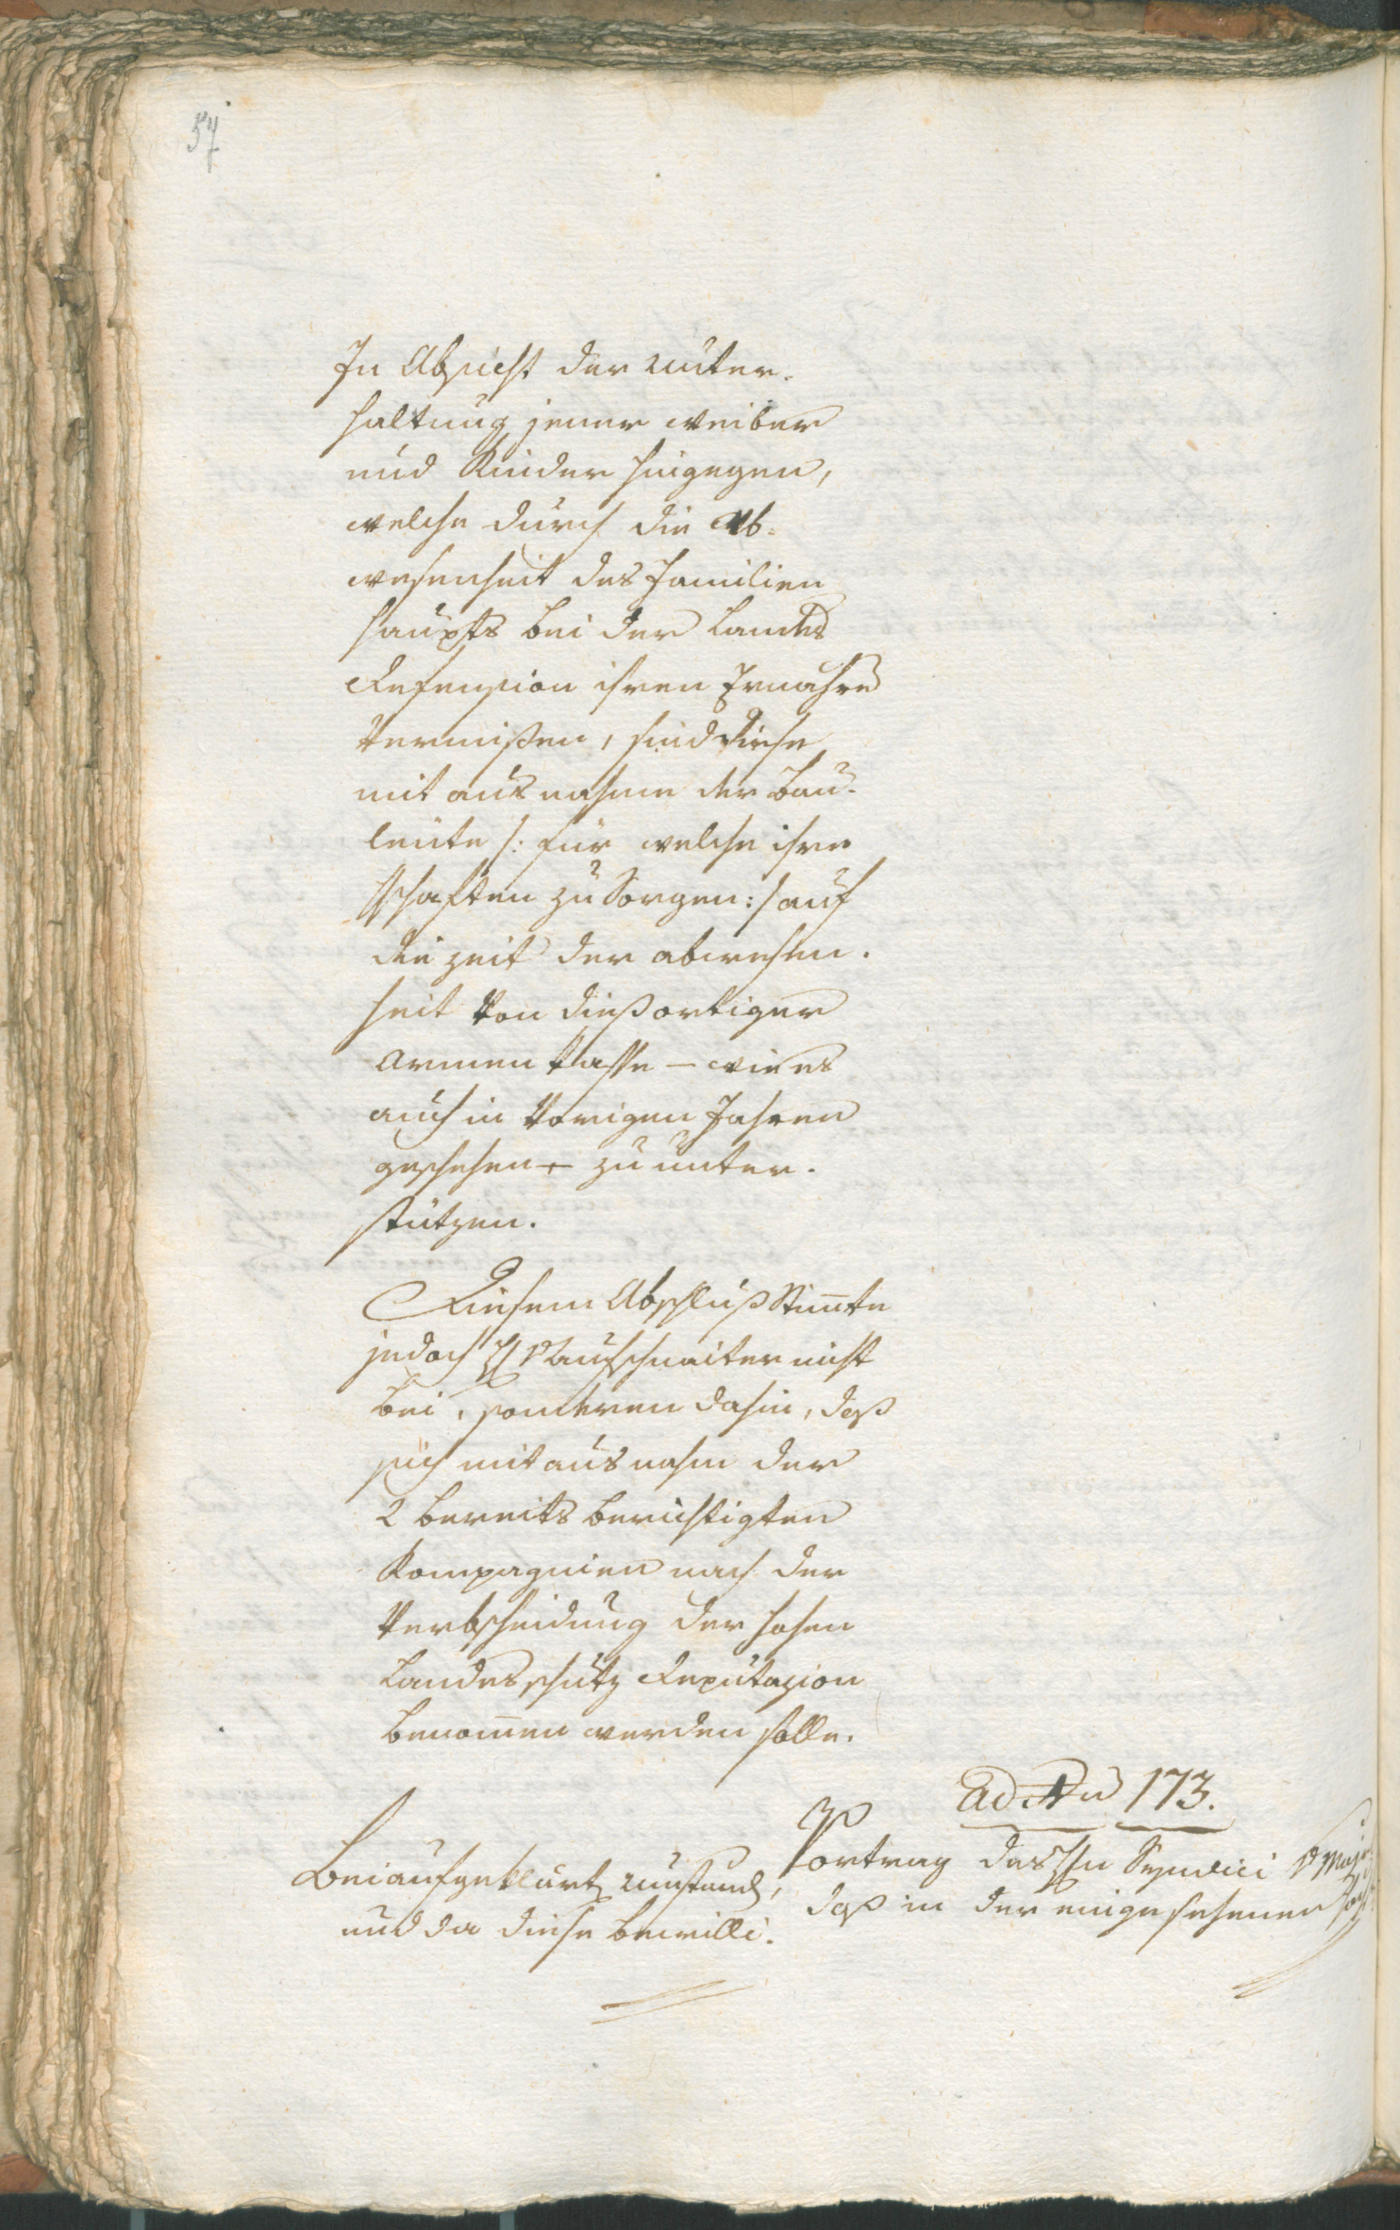 57
In Absicht der unter-
haltung jener weiber
und Kinder hingegen,
welche durch die Ab-
wesenheit des Familien
haupts bei der Landes
Defension ihren Ernährer
vermißen, sind diese
mit ausnahme der Bau-
leute /: für welche ihre
Hschaften zu Sorgen :/ auf
die zeit der abwesen-
heit von dießortiger
armen Kasse – wie es
auch in vorigen Jahren
geschehen – zu unter-
stützen.
Diesem Abschluß stimte
jedoch H v Aufschnaiter nicht
bei, sonderen dahin, daß
sich mit ausnahm der
2 bereits berichtigten
Kompagnien nach der
Verbscheidung der hohen
Landesschutz Deputazion
benommen werden solle.
ad Nu 173.
Vortrag des Hn Syndici v
daß in der eingesehenen
Bei aufgeklärt umständ,
und da diese bewilli-